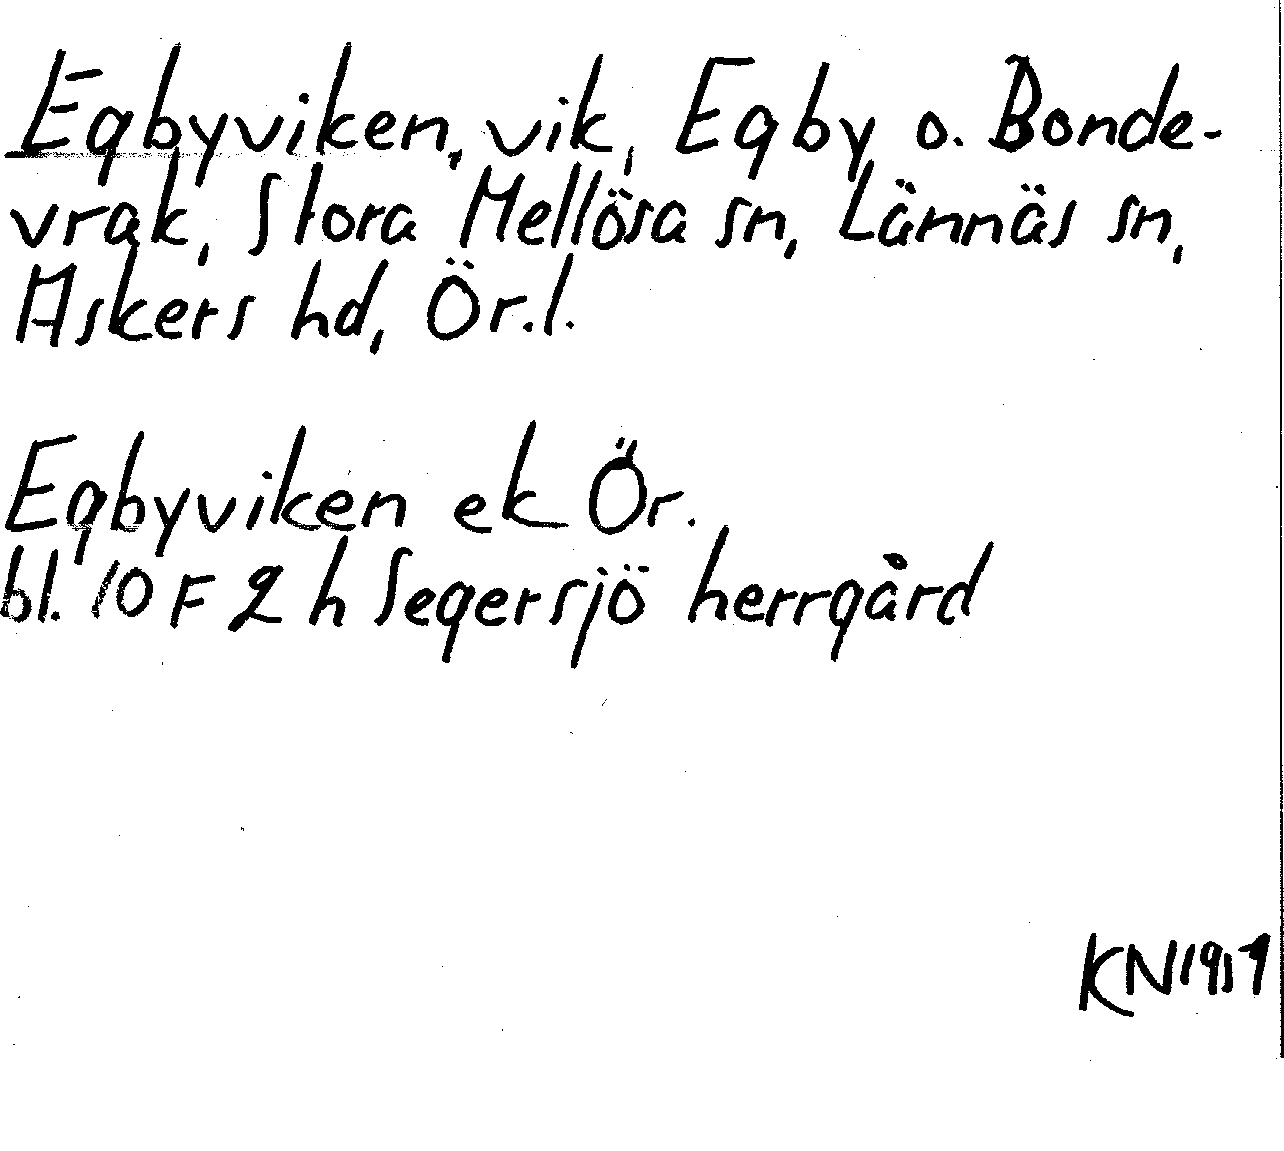 Egbyviken, vik, Egby o. Bonde-
vrak, Stora Mellösa sn, Lännäs sn,
Askers hd, Ör.l.
Egbyviken ek Ör.
bl. 10 F 2 h Segersjö herrgård